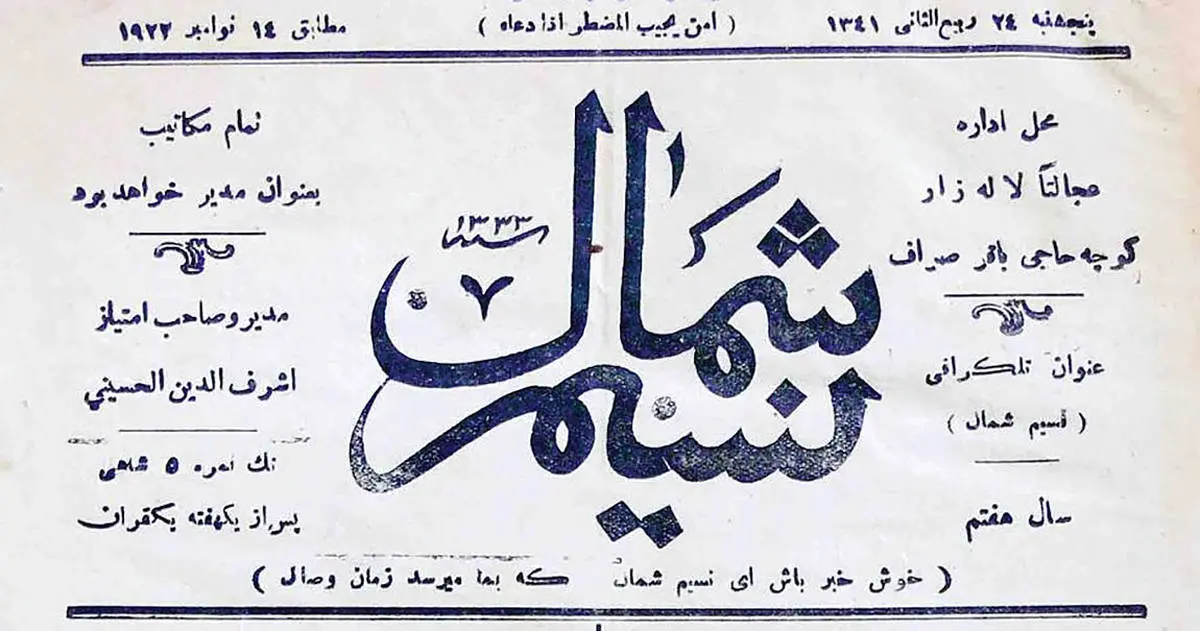 پنجشنبه ۲۴ ربیع الثانی ۱۳۴۱
( امن یجیب المضطر اذا دعاه )
مطابق ۱۴ نوامبر ۱۹۲۲
محل اداره
عجالتاً لاله زار
کوچه حاجی باقر صراف
عنوان تلکرافی
( نسیم شمال )
سال هفتم
نسیم شمال
سنه ۱۳۳۳
۷
تمام مکاتیب
بعنوان مدیر خواهد بود
مدیر و صاحب امتیاز
اشرف الدین الحسینی
تك نمره ۵ شاهی
پس از یکهفته یکقران
( خوش خبر باش ای نسیم شمال که بما میرسد زمان وصال )